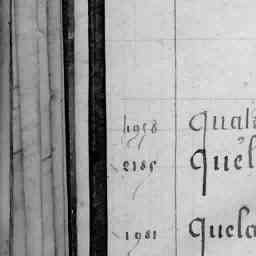 1958 Quala
2185 Quel
1981 Quela